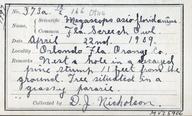 No. 373a 1/2
Scientific Megascops asio floridanus
Common Fla. Screech Owl
Date April 22nd. 1929.
Locality Orlando Fla. Orange Co.
Remarks Nest a hole in a decayed
pine stump 11 feet from the
ground. Tree situated in a
grassy prarie
Collected by D. J. Nicholson